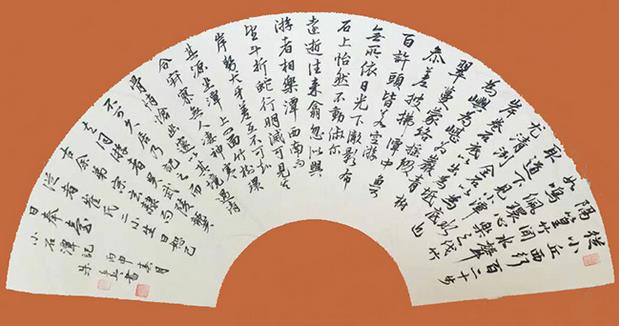 從小丘西行百二十步
隔篁竹闻水聲
如鳴佩環心樂之伐竹
取道下見小潭水
尤清洌全石以為底近
岸卷石底以出為坻
為嶼為嵁為巖青樹
翠蔓蒙絡摇綴
参差披拂潭中魚可
百許頭皆若空游
無所依日光下澈影布
石上怡然不動俶尔
遠逝往来翕忽似與
游者相樂潭西南而
望斗折蛇行明滅可見其
岸勢犬牙差互不可知
其源坐潭上四面竹樹環
合寂寥無人凄神寒
骨悄愴幽邃以其境過清
不可久居乃記之而
去同游者吴武陵龔
古余弟宗玄隸而
從者崔氏二小生曰恕己
曰奉壹
小石潭記
丙申
書